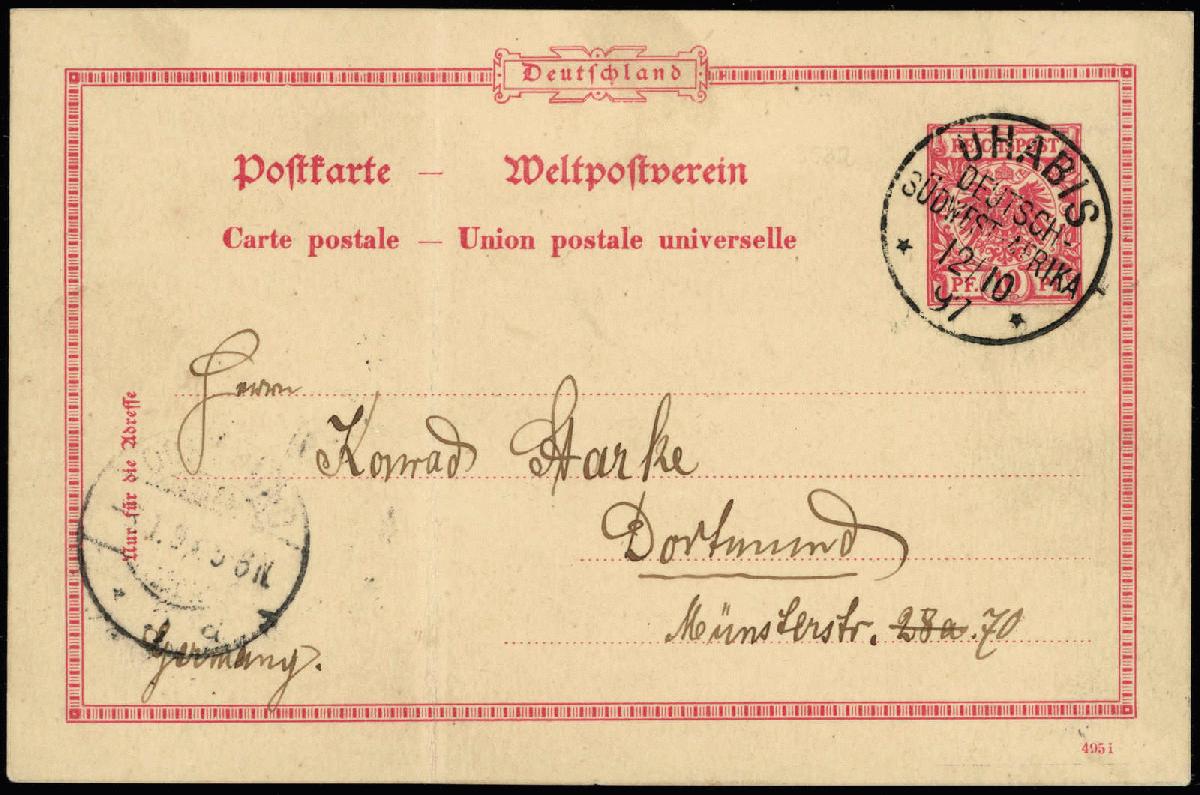 Deutschland
Postkarte — Weltpostverein
Carte postale — Union postale universelle
REICHSPOST
PF. 10 PF.
UHABIS
DEUTSCH-
SÜDWEST-AFRIKA
12/10
97
Herrn
Konrad Starke
Dortmund
Münsterstr. 28a. 70
Germany.
Nur für die Adresse
495i